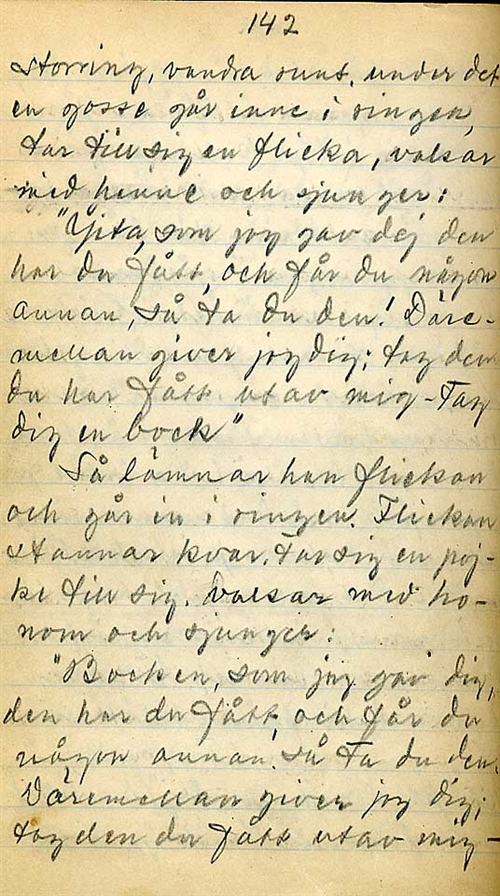 142
storring, vandra runt, under det
en gosse går inne i ringen,
tar till sig en flicka, valsar
med henne och sjunger:
"Gita, som jag gav dej den
har du fått, och får du någon
annan, så ta du den! Däre-
mellan giver jag dig; tag den
du har fått utav mig - Tag
dig en bock"
Så lämnar han flickan
och går in i ringen. Flickan
stannar kvar. Tar sig en poj-
ke till sig. Valsar med ho-
nom och sjunger:
"Bocken, som jag gav dig,
den har du fått, och får du
någon annan. så ta du den.
Däremellan giver jag dig;
tag den du fått utav mig -